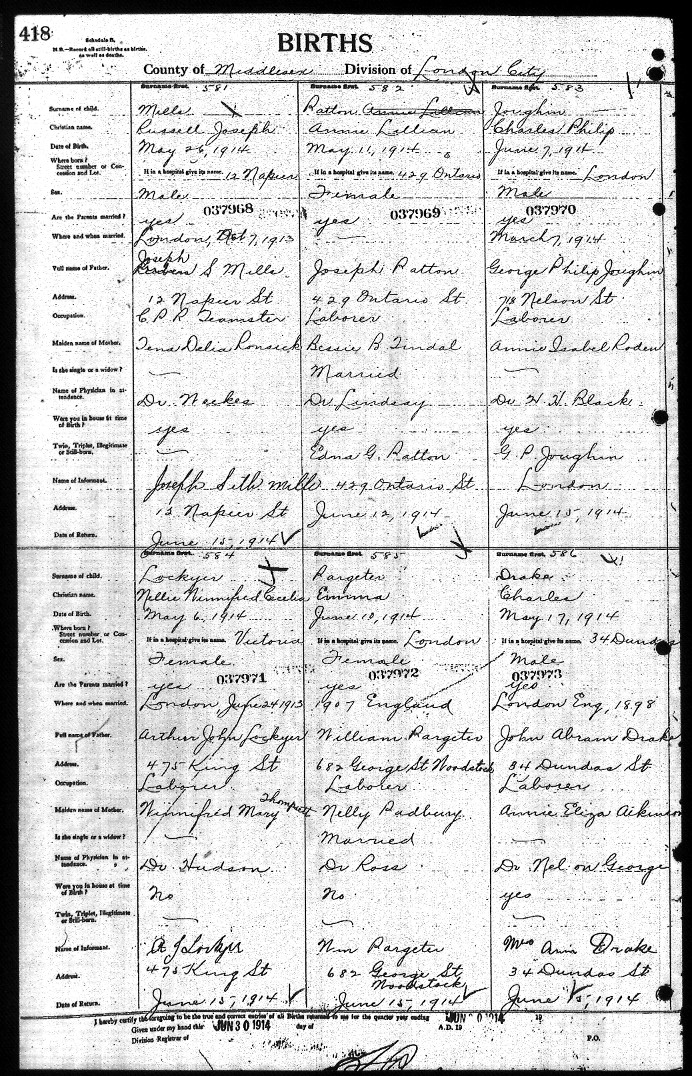 418
Schedule B.
N.B.—Record all still-births as births, as well as deaths.
BIRTHS
County of Middlesex Division of London City
Surname first. 581 Surname first. 582 Surname first. 583
Surname of child. Mills Patton Annie Lillian Joughin
Christian name. Russell Joseph Annie Lillian Charles Philip
Date of Birth. May 26, 1914 May 11, 1914 June 7, 1914
Where born? Street number or Concession and Lot. If in a hospital give its name. 12 Napier If in a hospital give its name. 429 Ontario If in a hospital give its name. London
Sex. Male Female Male
037968 037969 037970
Are the Parents married? yes yes yes
Where and when married. London, Oct 7, 1913 — March 7, 1914
Joseph
Full name of Father. S Mills Joseph Patton George Philip Joughin
Address. 12 Napier St 429 Ontario St 718 Nelson St
Occupation. C.P.R Teamster Laborer Laborer
Maiden name of Mother. Tena Delia Bessie B Tindal Annie Isabel Roden
Is she single or a widow? — Married —
Name of Physician in attendance. Dr. Dr Lindsay Dr H H Black
Were you in house at time of Birth? yes yes yes
Twin, Triplet, Illegitimate or Still-born. — Edna G. Patton G. P. Joughin
Name of Informant. Joseph Seth Mills 429 Ontario St London
Address. 12 Napier St June 12, 1914 June 15, 1914
Date of Return. June 15, 1914
Surname first. 584 Surname first. 585 Surname first. 586
Surname of child. Lockyer Pargeter Drake
Christian name. Nellie Winnifred Cecelia Emma Charles
Date of Birth. May 6, 1914 June 10, 1914 May 17, 1914
Where born? Street number or Concession and Lot. If in a hospital give its name. Victoria If in a hospital give its name. London If in a hospital give its name. 34 Dundas
Sex. Female Female Male
037971 037972 037973
Are the Parents married? yes yes yes
Where and when married. London, June 24 1913 1907 England London Eng, 1898
Full name of Father. Arthur John Lockyer William Pargeter John Abram Drake
Address. 475 King St 682 George St Woodstock 34 Dundas St
Occupation. Laborer Laborer Laborer
Maiden name of Mother. Winnifred Mary Thompsett Nelly Padbury Annie Eliza Atkinson
Is she single or a widow? — Married —
Name of Physician in attendance. Dr Hudson Dr Ross Dr Nelson George
Were you in house at time of Birth? No No yes
Twin, Triplet, Illegitimate or Still-born. — — —
Name of Informant. A J Lockyer Wm Pargeter Mrs Ann Drake
Address. 475 King St 682 George St Woodstock 34 Dundas St
Date of Return. June 15, 1914 June 15, 1914 June 15, 1914
I hereby certify the foregoing to be the true and correct entries of all Births returned to me for the quarter year ending JUN 30 1914 19
Given under my hand this JUN 30 1914 day of A.D. 19
Division Registrar of P.O.